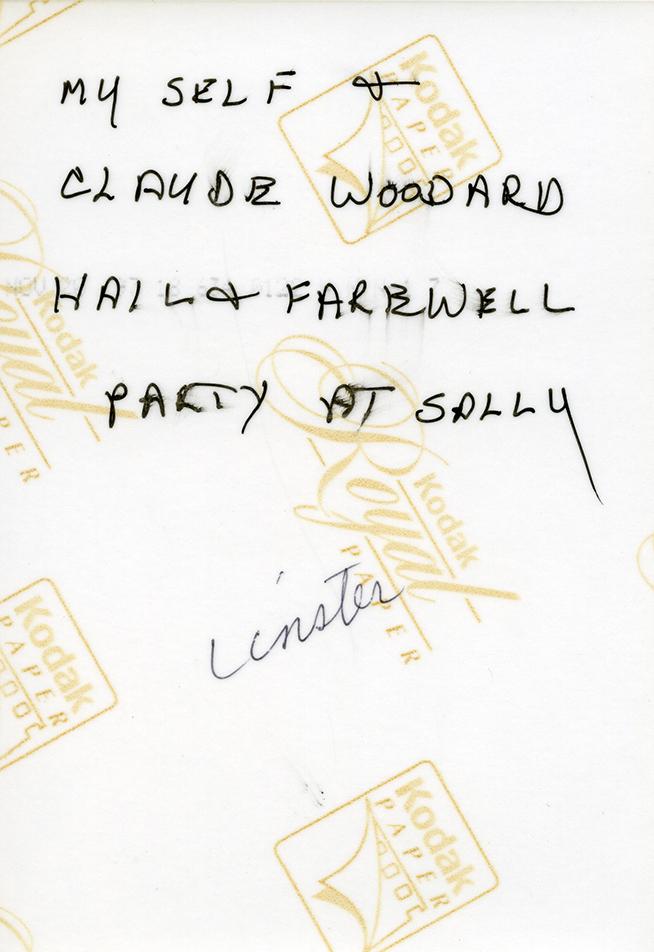 MY SELF &
CLAUDE WOODARD
HAIL & FAREWELL
PARTY AT SALLY
Linster
Kodak
PAPER
Kodak
Royal
PAPER
Kodak
Royal
PAPER
Kodak
PAPER
Kodak
PAPER